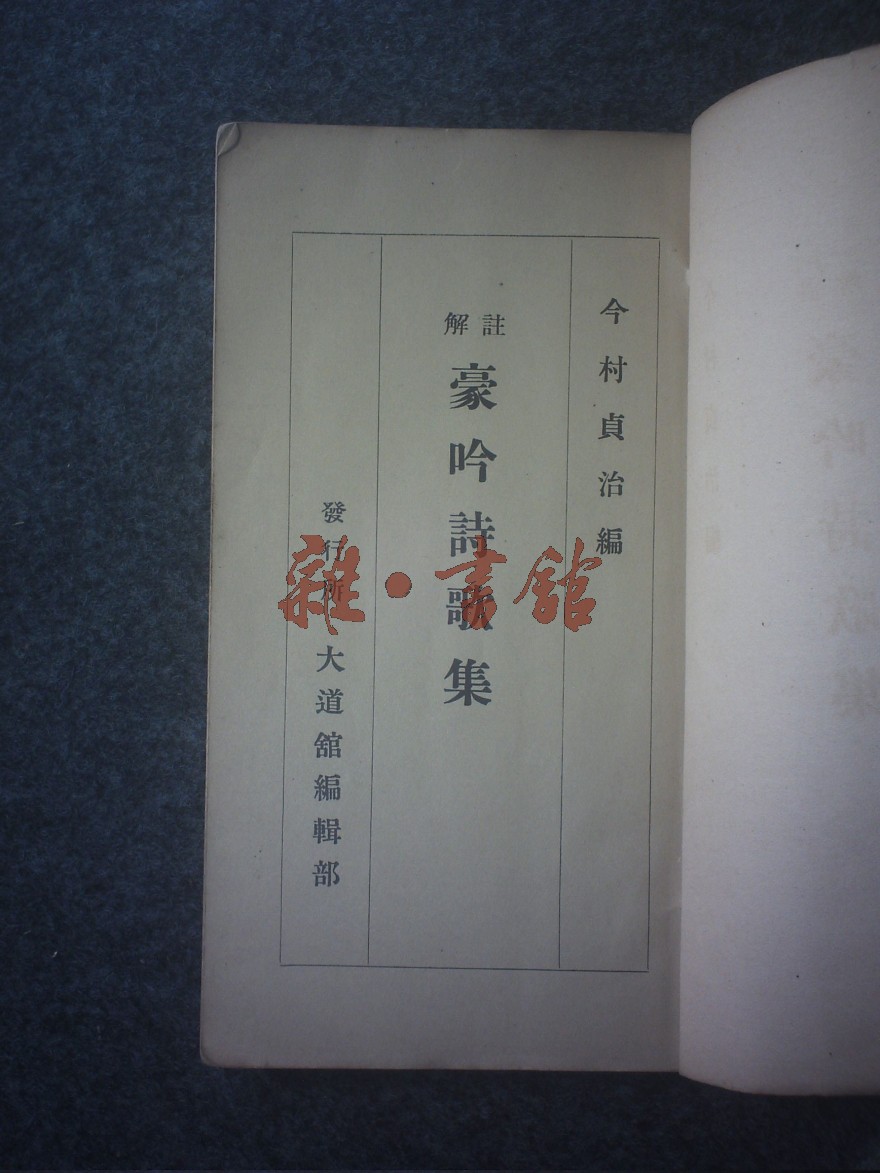 今村貞治編
註解
豪吟詩歌集
發行所 大道舘編輯部
雜·書舘